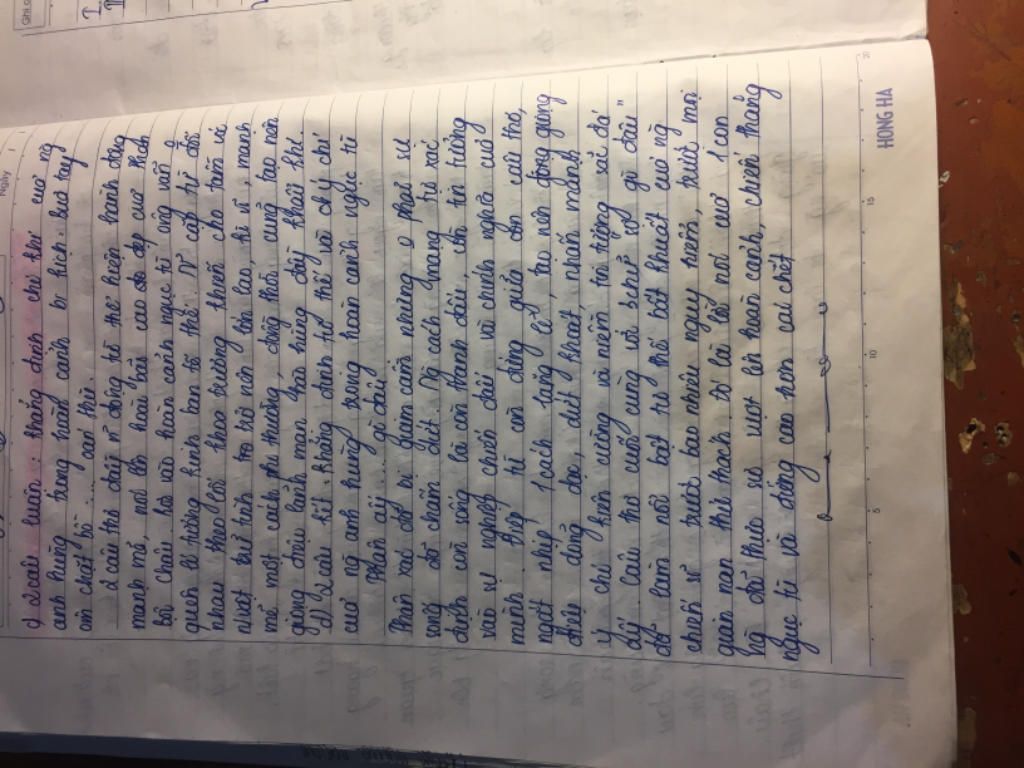 2 câu luận: thẳng danh cho thơ của ng
anh hùng trong hoàng cảnh bi kịch: bủa tay
ôm chặt bồ ... oán thù.
2 câu thơ đầy n' động từ thể hiện hành động
mạnh mẽ, mơ hoài bão cao đẹp của Phan
Bội Châu dù vào hoàn cảnh ngục tù ông vẫn o
quên lí tưởng kinh bang tế thế. N' cặp từ đối
nhau theo lối khoa trương khiến cho tầm vóc
nhật trữ tình trở nên lớn lao kì vĩ, mạnh
mẽ một cách phi thường đồng thời cũng tạo nên
giọng điệu lãnh mạn hào hùng đầy khí
d) 2 câu kết: khẳng định tư thế và ý chí
của ng anh hùng trong hoàn cảnh ngục tù
Thân ấy ... gì đâu
Phan xơ đó bị giam cầm nhưng o phải sự
sống đó chấm dứt. Ng cách mạng tự xác
định còn sống là còn đấu tranh còn tin tưởng
vào sự nghiệp chiến đấu vì chính nghĩa của
mình. Điệp từ còn đứng giữa câu thơ,
ngắt nhịp 1 cách tạo nên giọng
điệu dõng dạc, dứt khoát, nhấn mạnh
ý chí kiên cường và niềm tin
ấy. Câu thơ cuối cùng sợ gì đâu"
đã làm nổi bật tư thế bất khuất của ng
chiến sĩ trước bao nhiêu nguy hiểm, trước mọi
gian nan thử thách. Đó là lối nói của 1 con
ng đã thực sự vượt lên hoàn cảnh, chiến thắng
ngục tù và đứng cao hơn cái chết
HONG HA
5
10
15
20
Ngày
Ghi c